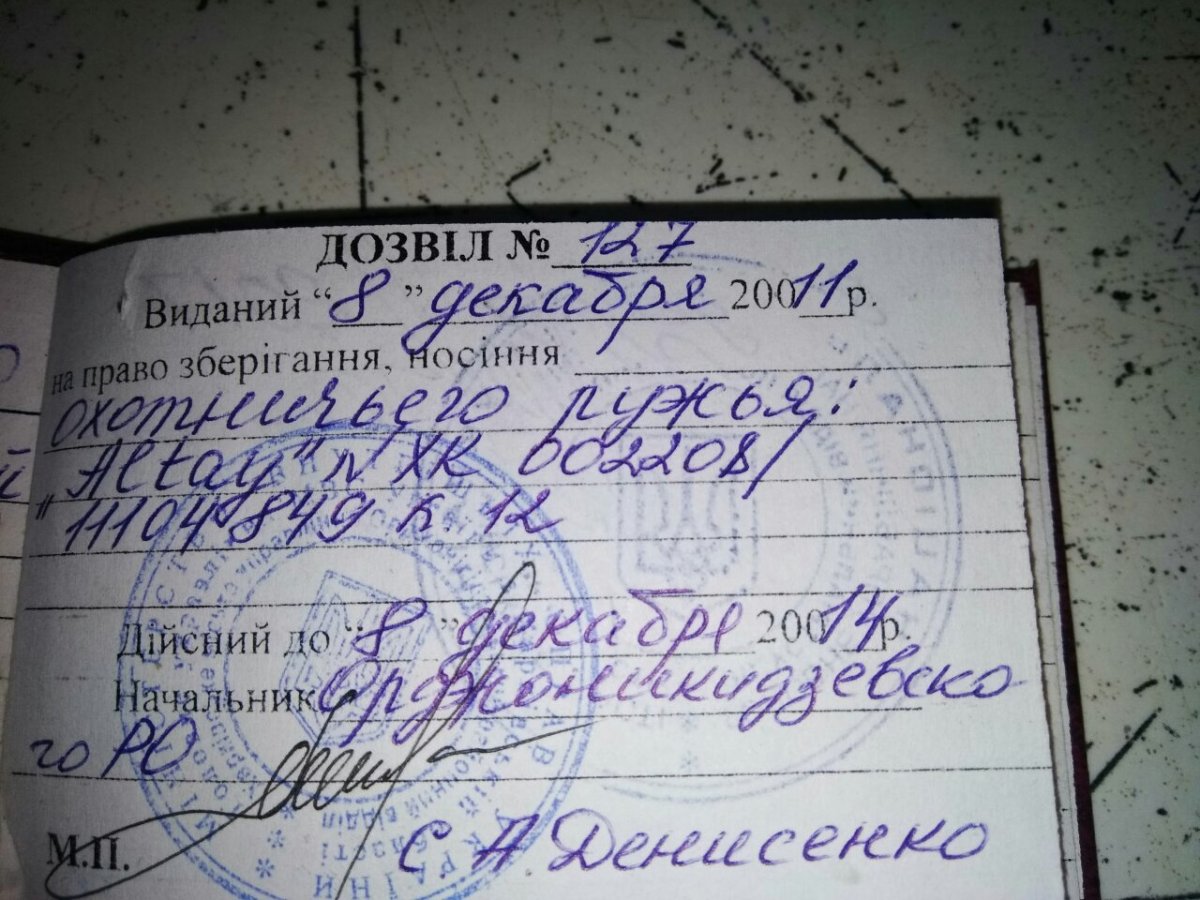 ДОЗВІЛ № 127
Виданий “8” декабря 20011р.
на право зберігання, носіння
охотничьего ружья:
"Altay" N ХК 002208/
11104849 к 12
Дійсний до “8” декабря 20014р.
Начальник Орджоникидзевско
го РО
М.П. С А Денисенко